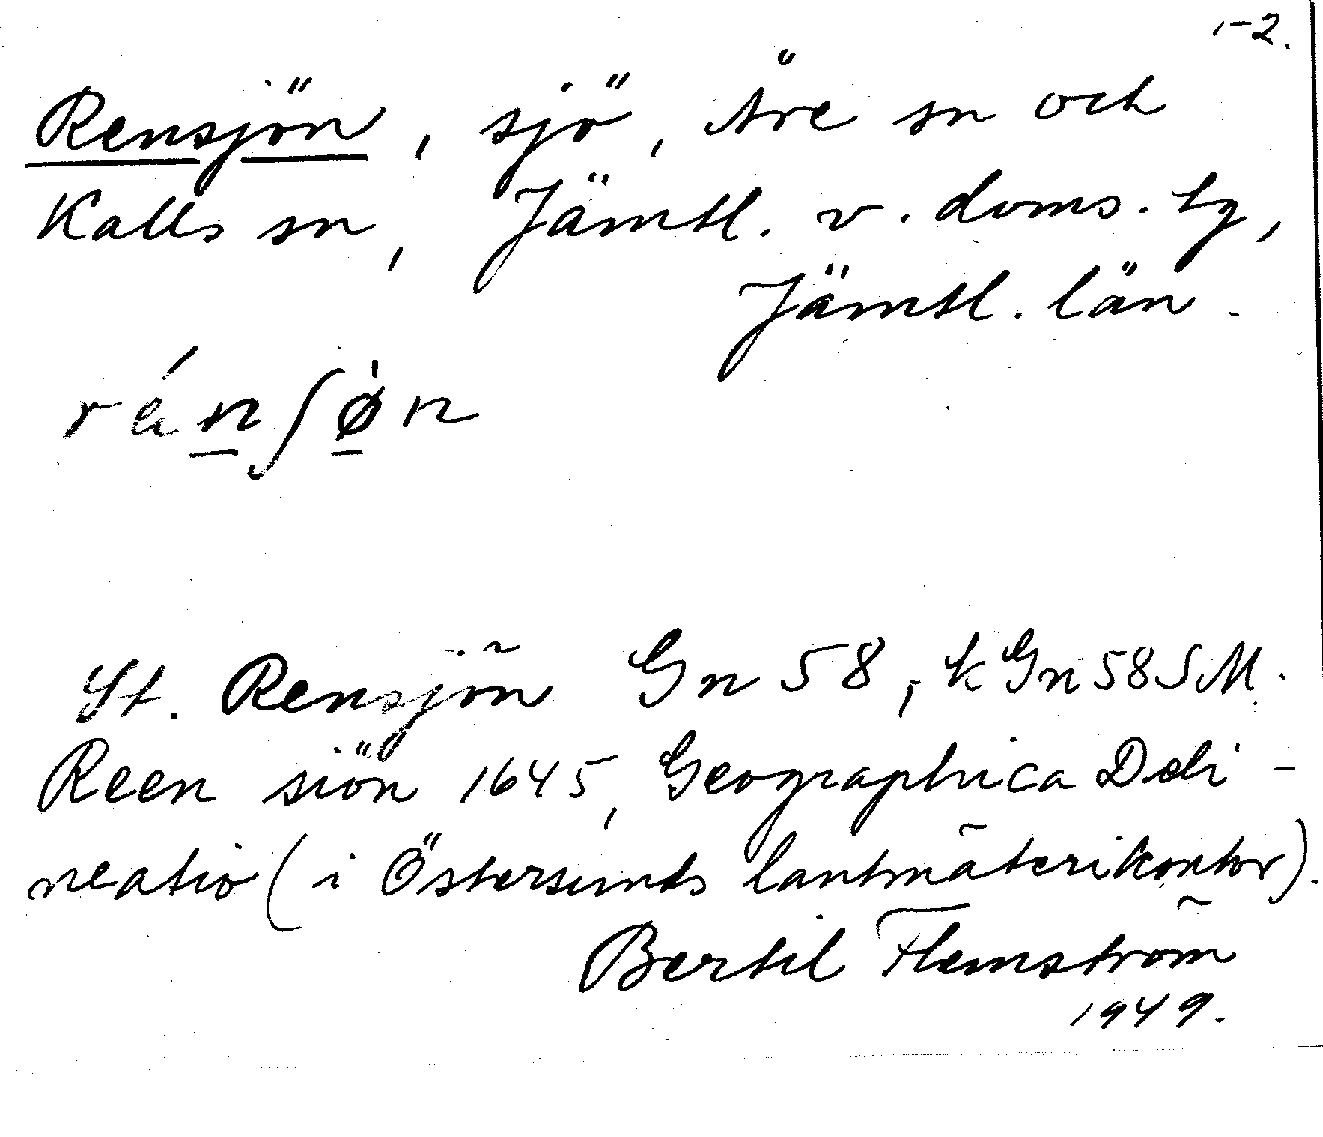 1-2.
Rensjön, sjö, Åre sn och
Kalls sn, Jämtl. v. doms. tg,
Jämtl. län.
rénʃø̀n
St. Rensjön Gn 58, k Gn 58 SM.
Reen siön 1645, Geographica Deli-
neatio (i Östersunds lantmäterikontor).
Bertil Flemström
1949.